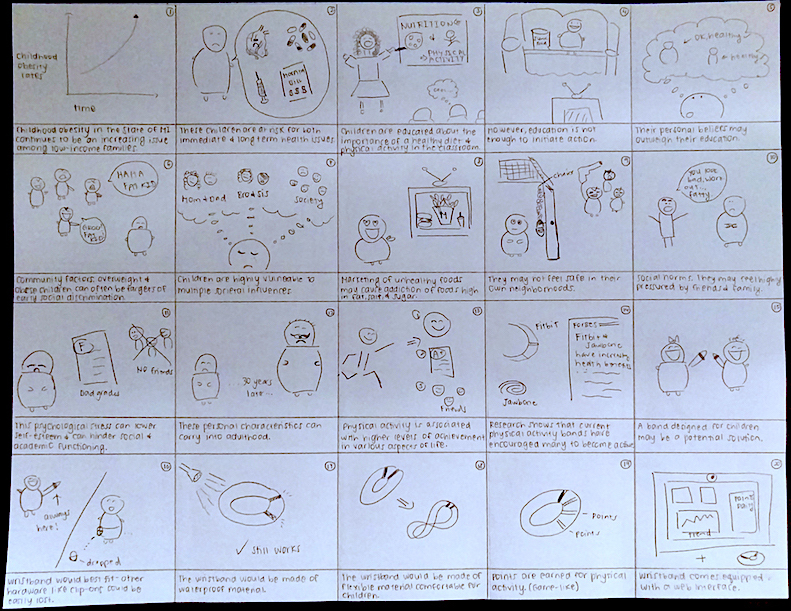 1
Childhood
obesity
rates
time
Childhood obesity in the State of MI
continues to be an increasing issue
among low-income families.
2
These children are at risk for both
immediate & long term health issues.
3
NUTRITION
&
PHYSICAL
ACTIVITY
Children are educated about the
importance of a healthy diet &
physical activity in the classroom.
4
However, education is not
enough to initiate action.
5
OK, healthy
healthy
Their personal beliefs may
outweigh their education.
6
HAHA
FAT KID
Community factors, overweight &
obese children can often be targets of
early social discrimination.
7
Mom & Dad
Bro & Sis
Society
Children are highly vulnerable to
multiple societal influences
8
M
Marketing of unhealthy foods
may cause addiction of foods high
in fat, salt, & sugar.
9
They may not feel safe in their
own neighborhoods.
10
You look
bad, work
out...
fatty.
Social norms. They may feel highly
pressured by friends & family.
11
F
Bad grades
No friends
This psychological stress can lower
self-esteem & can hinder social &
academic functioning.
12
30 years
later...
These personal characteristics can
carry into adulthood.
13
1
2
A+
3
friends
Physical activity is associated
with higher levels of achievement
in various aspects of life.
14
Fitbit
Jawbone
Forbes
Fitbit &
Jawbone
have
health benefits
Research shows that current
physical activity bands have
encouraged many to become active
15
A band designed for children
may be a potential solution.
16
always
here!
dropped
Wristband would best fit-other
hardware like clip-ons could be
easily lost.
17
✓ still works
The wristband would be made of
waterproof material.
18
The wristband would be made of
flexible material comfortable for
children.
19
points
points
Points are earned for physical
activity. (Game-like)
20
trend
+
Wristband comes equipped
with a web interface.